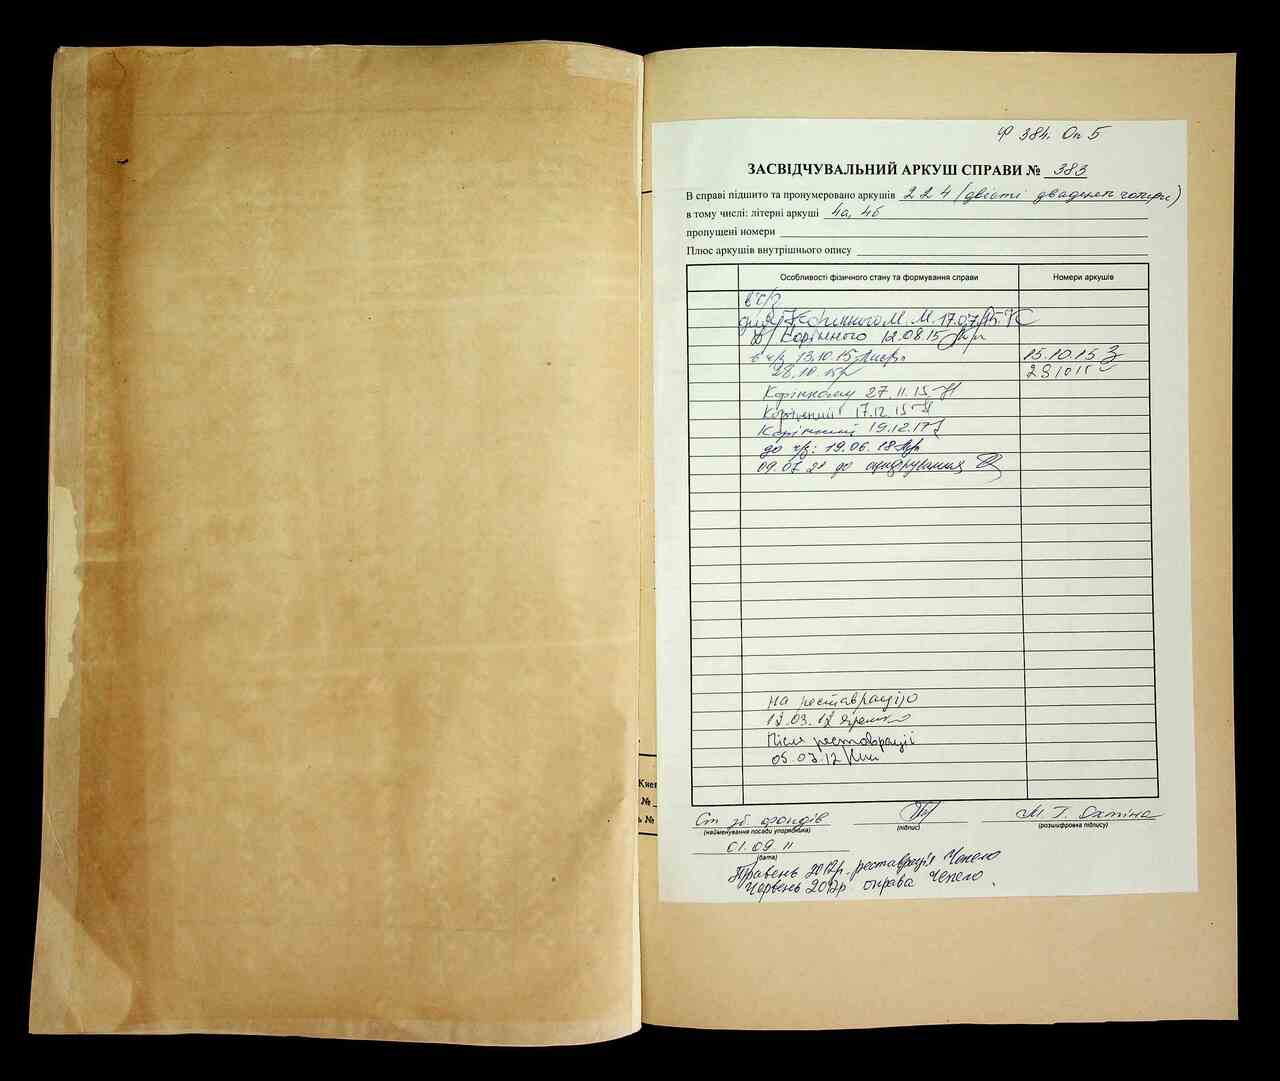 Киев
№
№
Ф 384. Оп 5
ЗАСВІДЧУВАЛЬНИЙ АРКУШ СПРАВИ № 383
В справі підшито та пронумеровано аркушів 224 (двісті двадцять чотири)
в тому числі: літерні аркуші 4а, 4б
пропущені номери
Плюс аркушів внутрішнього опису
Особливості фізичного стану та формування справи Номери аркушів
в ч/з
Корінного М. М. 17.07.15
Корінного 12.08.15
в ч/з 13.10.15 15.10.15
28.10 281015
Корінному 27.11.15
Корінний 17.12.15
Корінний 19.12.17
до ч/з: 19.06.18
09.07.21 до оцифрування
На реставрацію
12.03.12
Після реставрації
05.03.12
Ст. зб. фондів М. Г. Охтіна
(найменування посади упорядника) (підпис) (розшифровка підпису)
01.09 11
(дата)
Травень 2012р. реставрація Чепело
Червень 2012р оправа Чепело.